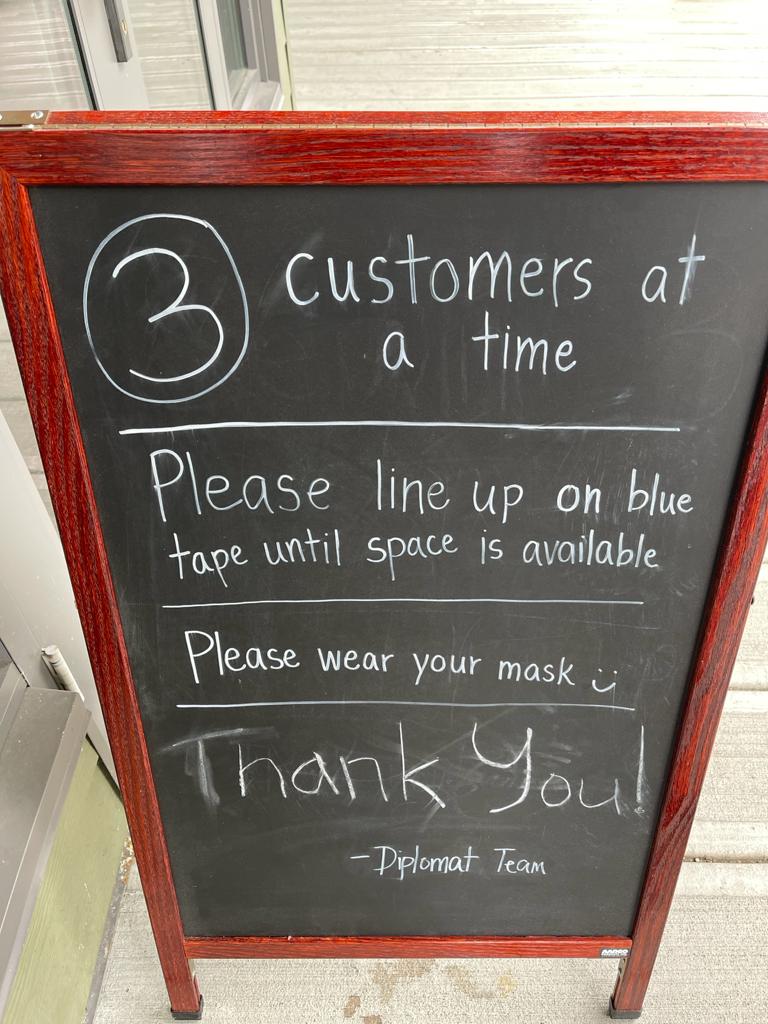 3 customers at
a time
Please line up on blue
tape until space is available
Please wear your mask :)
Thank You!
- Diplomat Team
AARCO